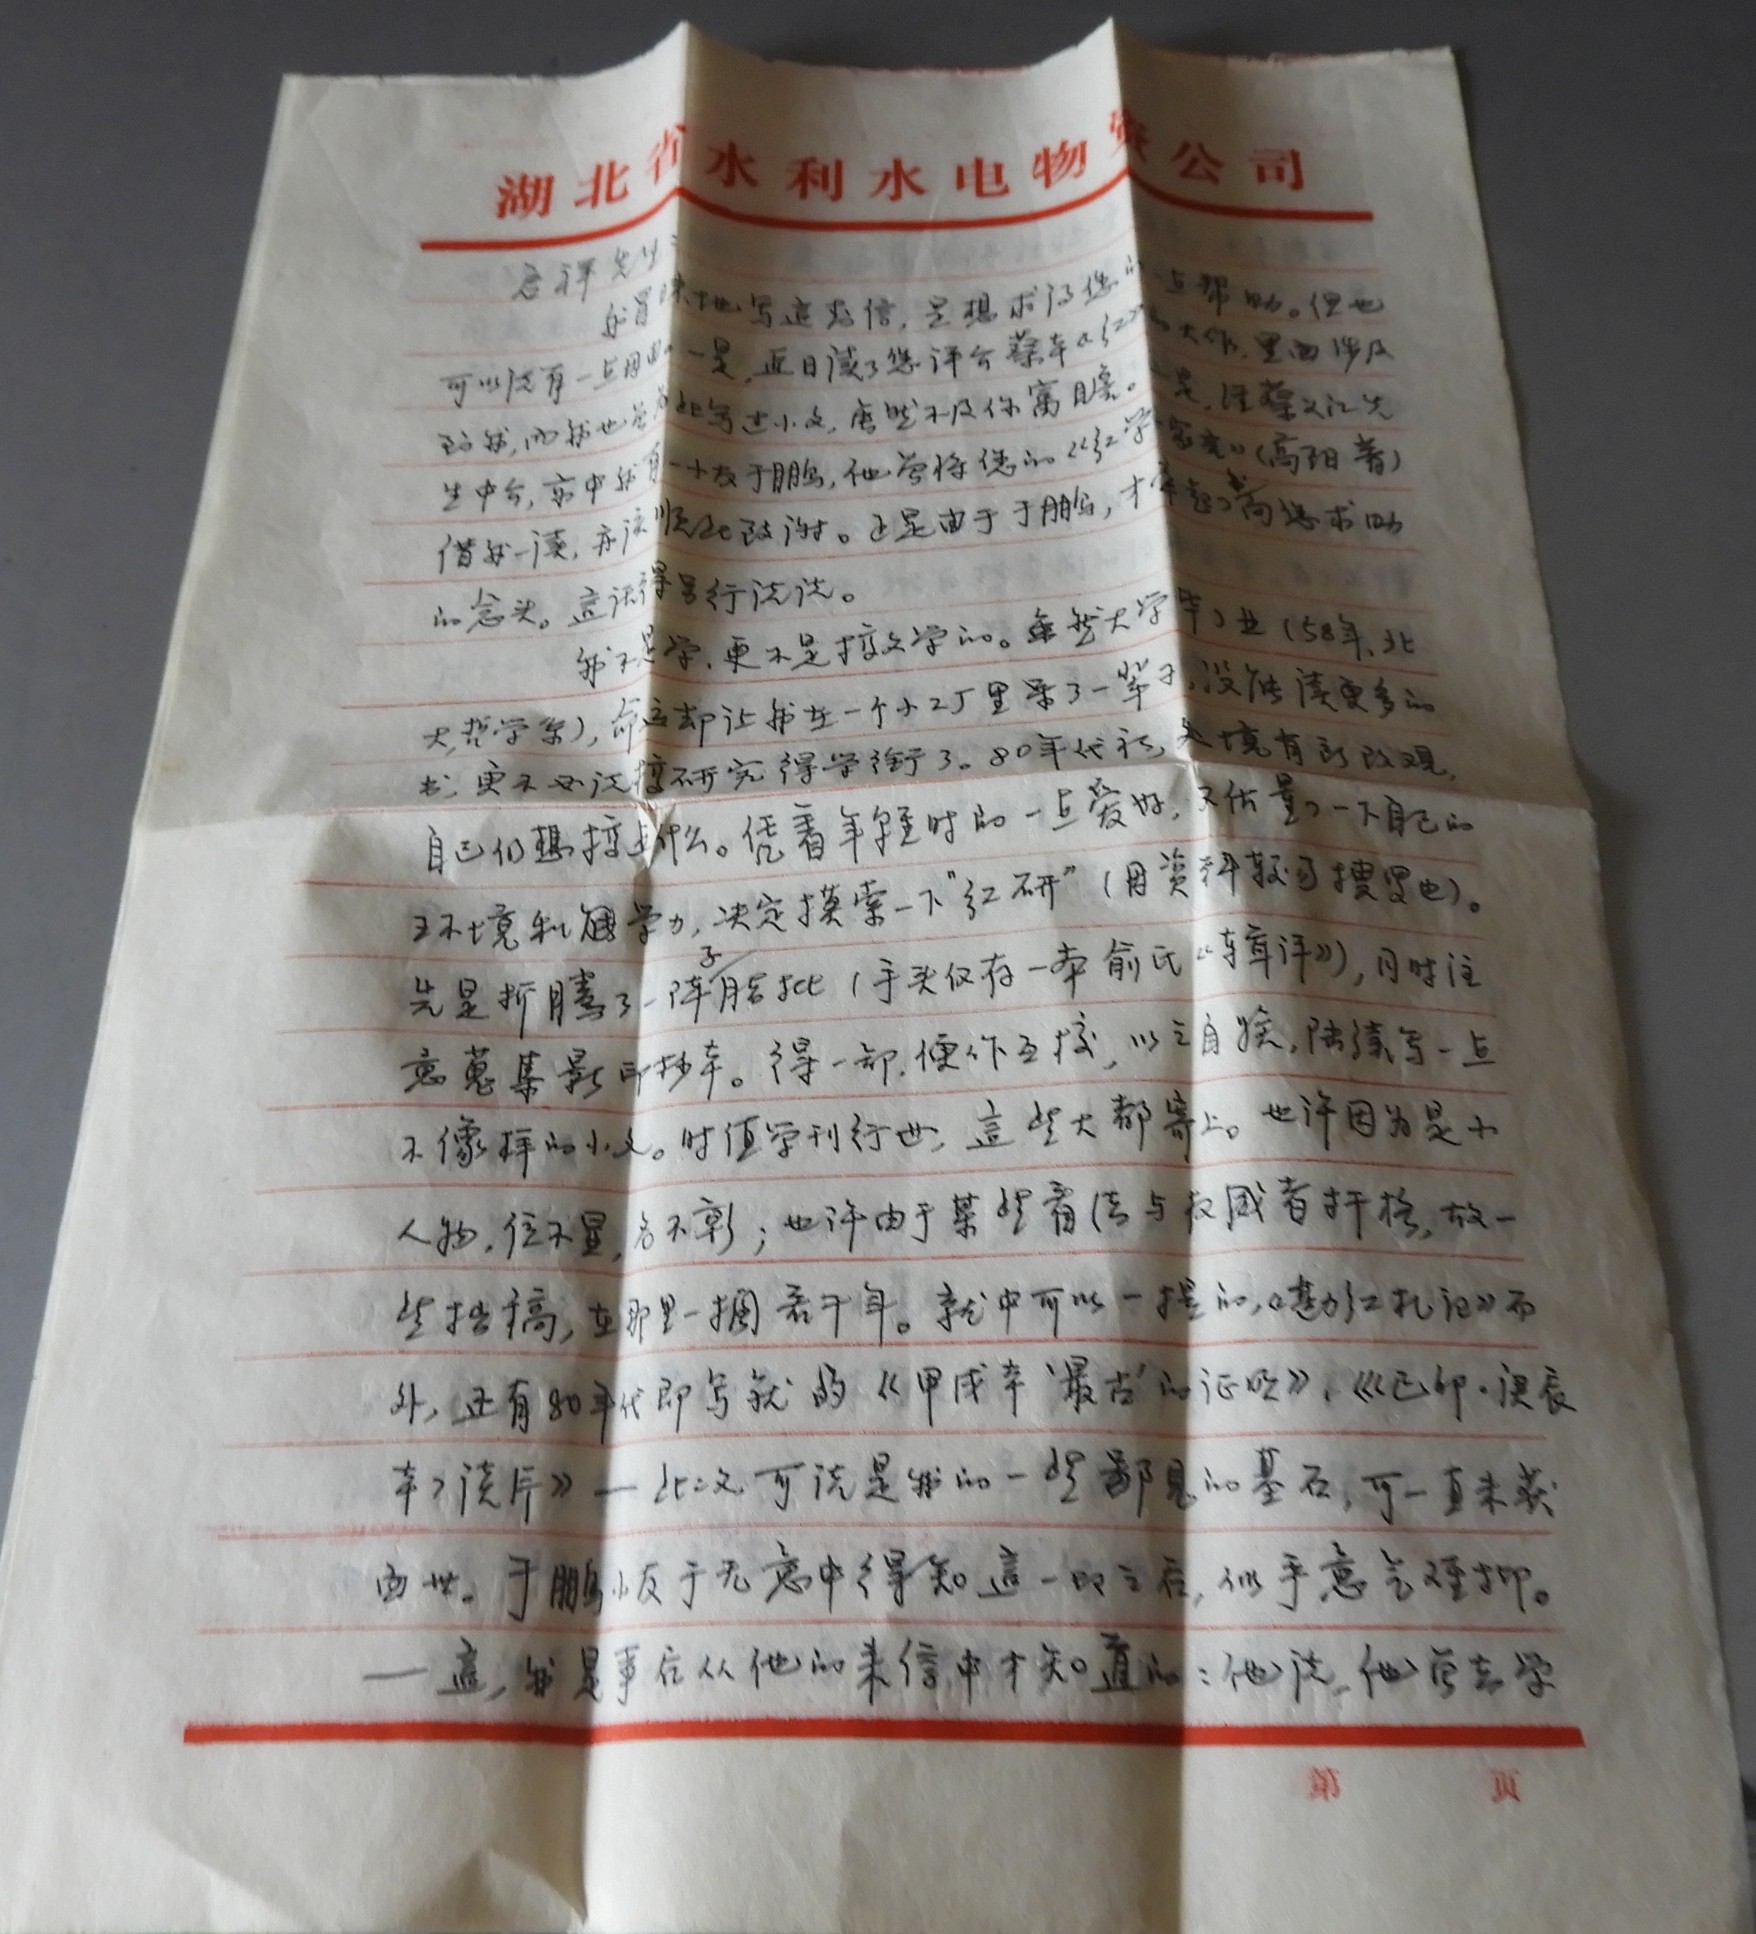 湖北省水利水电物资公司
先生:
我冒昧地写这封信,是想求得您的一点帮助。但也
可以说有一点因由。一是,近日读了您评介蔡本《红》的大作,里面涉及
到我,而我也曾为此写过小文,当然不及你寓目。二是,注蔡义江先
生中介,京中我有一小友于鹏,他曾将您的《红学家言》(高阳著)
借我一读,亦该顺此致谢。正是由于于鹏,才牵起了我向您求助
的念头。这话得另行说说。
我不是学,更不是搞文学的。虽然大学毕业(58年、北
大,哲学系),命运却让我在一个小工厂里呆了一辈子,没能读更多的
书,更不必说搞研究得学衔了。80年代初,处境有所改观,
自己仍想搞点什么。凭着年轻时的一点爱好,又估量了一下自己的
环境和学力,决定摸索一下“红研”(因资料较可搜罗也)。
先是折腾了一阵子脂批(手头仅存一本俞氏《辑评》),同时注
意蒐集影印抄本。得一部,便作互校,以之自娱,陆续写一点
不像样的小文。时值学刊行世,这些大都寄上。也许因为是小
人物,位不显,名不彰;也许由于某些看法与权威者扞格,故一
些拙稿,在那里一搁若干年。就中可以一提的,《红札记》而
外,还有80年代即写就的《甲戌本‘最古’的证明》、《〈己卯·庚辰
本〉读片》—此二文可说是我的一些鄙见的基石,可一直未获
面世。于鹏小友于无意中得知这一切之后,似乎意气难抑。
——这,我是事后从他的来信中才知道的:他说,他曾去学
第 页